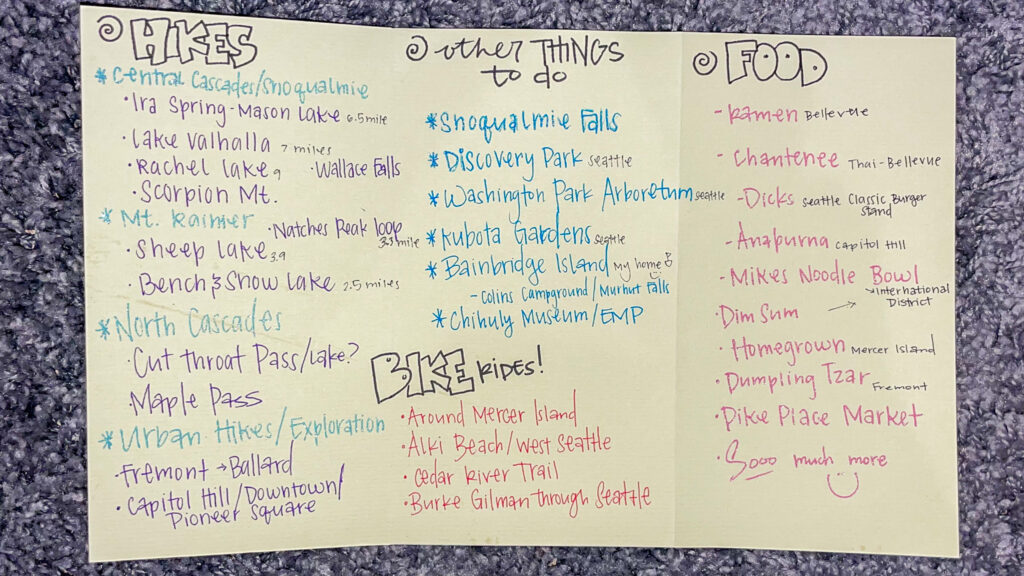 HIKES
* Central Cascades/Snoqualmie
• Ira Spring-Mason Lake 6.5 mile
• Lake Valhalla 7 miles
• Rachel Lake 9 • Wallace Falls
• Scorpion Mt.
* Mt. Rainier • Natches Peak loop 3.3 mile
• Sheep Lake 3.9
• Bench & Snow Lake 2.5 miles
* North Cascades
• Cut throat Pass/Lake?
• Maple Pass
* Urban Hikes/Exploration
• Fremont → Ballard
• Capitol Hill/Downtown/
Pioneer Square
other THINGS
to do
* Snoqualmie Falls
* Discovery Park seattle
* Washington Park Arboretum seattle
* Kubota Gardens seattle
* Bainbridge Island my home
- Colins Campground/Murhut Falls
* Chihuly Museum/EMP
BIKE RIDES!
• Around Mercer Island
• Alki Beach/West Seattle
• Cedar River Trail
• Burke Gilman through Seattle
FOOD
- Ramen Bellevue
- Chantenee Thai-Bellevue
- Dicks Seattle Classic Burger
Stand
- Anapurna Capitol Hill
- Mikes Noodle Bowl
→ International
District
• Dim Sum →
• Homegrown Mercer Island
• Dumpling Tzar Fremont
• Pike Place Market
• Sooo much more